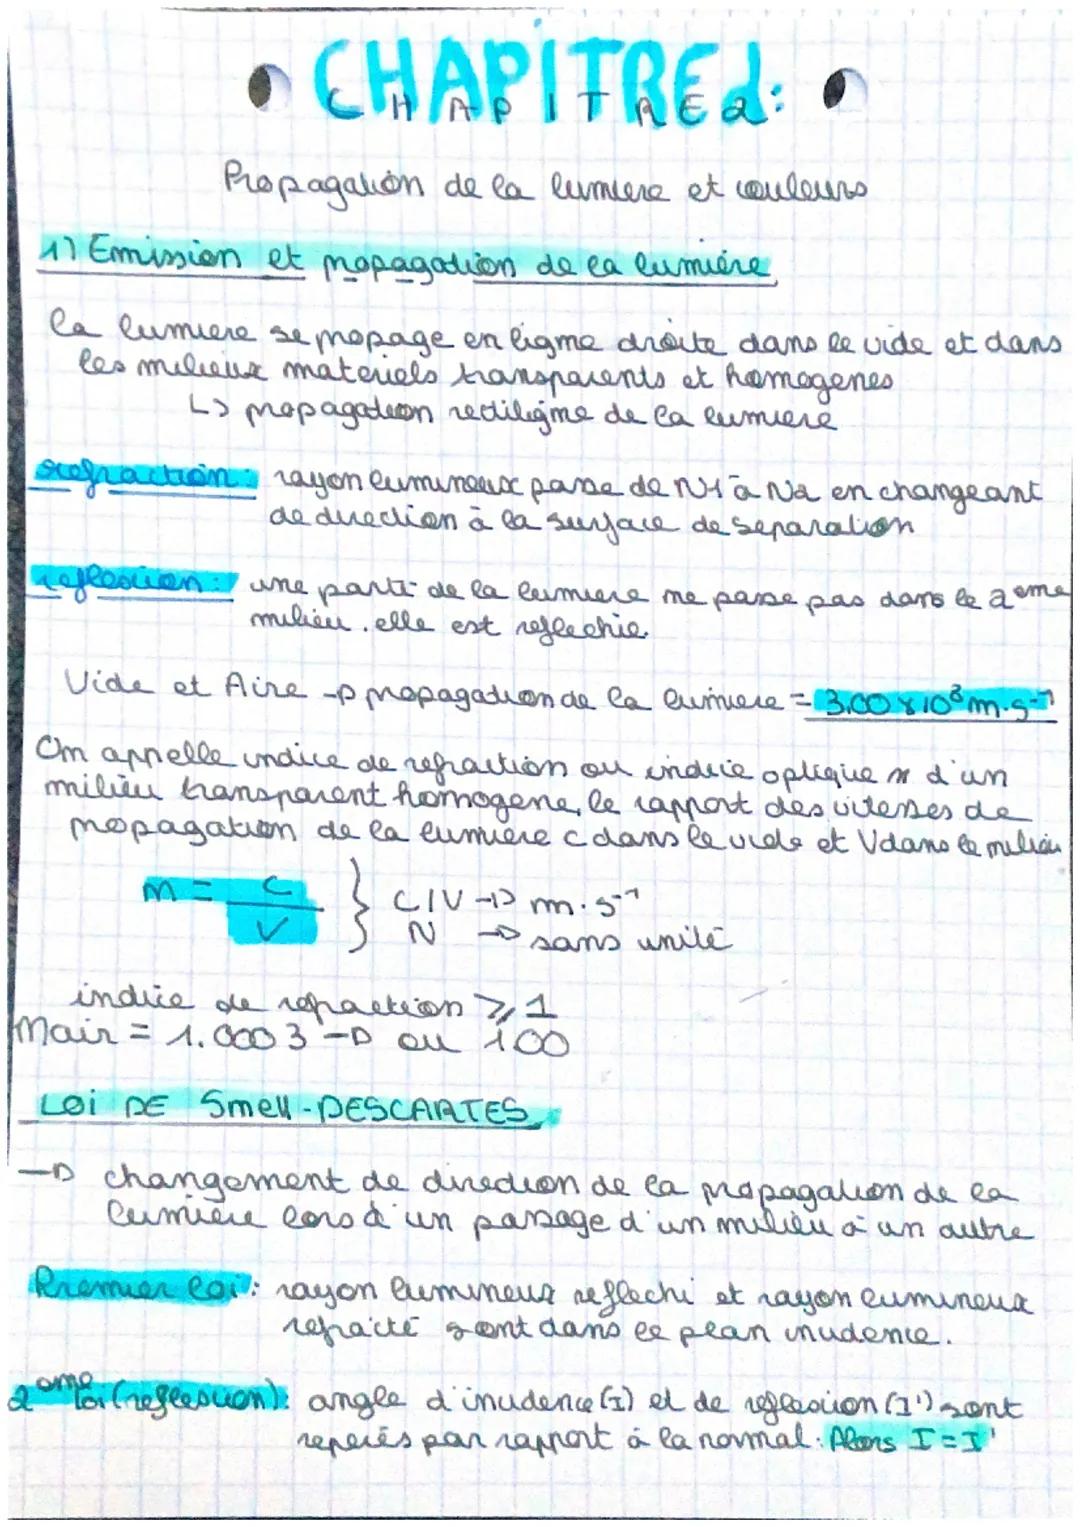 CHAPITRE 2:
Propagation de la lumiere et couleurs
1) Emission et propagation de la lumière
la lumiere se propage en ligne droite dans le vide et dans
les milieux materiels transparents et homogenes
↳ propagation rectiligne de la lumiere
refraction: rayon lumineux passe de N1 à N2 en changeant
de direction à la surface de separation
reflexion: une parti de la lumiere ne passe pas dans le 2eme
milieu. elle est reflechie.
Vide et Aire → propagation de la lumiere = 3,00 x 10⁸ m.s⁻¹
On appelle indice de refraction ou indice optique n d'un
milieu transparent homogene, le rapport des vitesses de
propagation de la lumiere c dans le vide et V dans le milieu
n = C / V } C/V → m.s⁻¹
N → sans unité
indice de refraction ≥ 1
nair = 1.0003 → ou 1.00
Loi DE Snell-DESCARTES
→ changement de direction de la propagation de la
lumière lors d'un passage d'un milieu à un autre
Premier loi: rayon lumineux reflechi et rayon lumineux
refracté sont dans le plan incidence.
2eme loi (reflexion): angle d'incidence (I) et de reflexion (I') sont
reperés par rapport à la normal: Alors I = I'